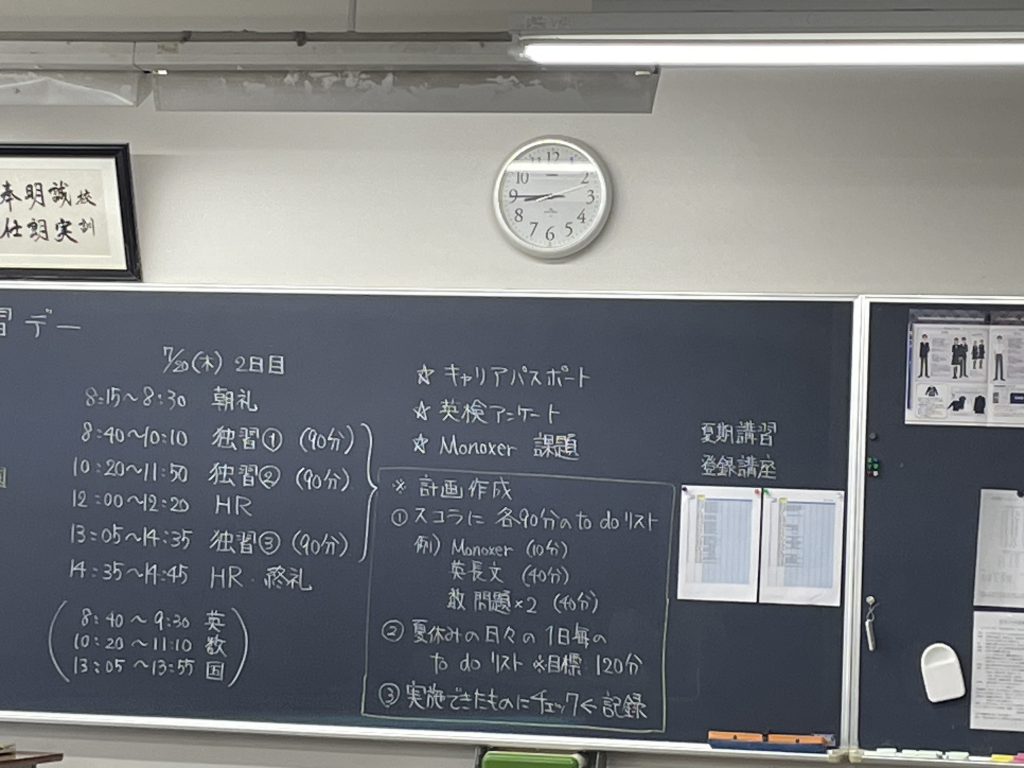 校訓
誠実
明朗
奉仕
12
1
2
3
4
5
6
7
8
9
10
11
習デー
7/20(木) 2日目
8:15～8:30 朝礼
8:40～10:10 独習① (90分)
10:20～11:50 独習② (90分)
12:00～12:20 HR
13:05～14:35 独習③ (90分)
14:35～14:45 HR・終礼
(8:40～9:30 英
10:20～11:10 数
13:05～13:55 国)
☆ キャリアパスポート
☆ 英検アンケート
☆ Monoxer 課題
※ 計画作成
① スコラに 各90分のto do リスト
例) Monoxer (10分)
英長文 (40分)
数 問題×2 (40分)
② 夏休みの日々の1日毎の
to do リスト ※目標 120分
③ 実施できたものにチェック← 記録
夏期講習
登録講座